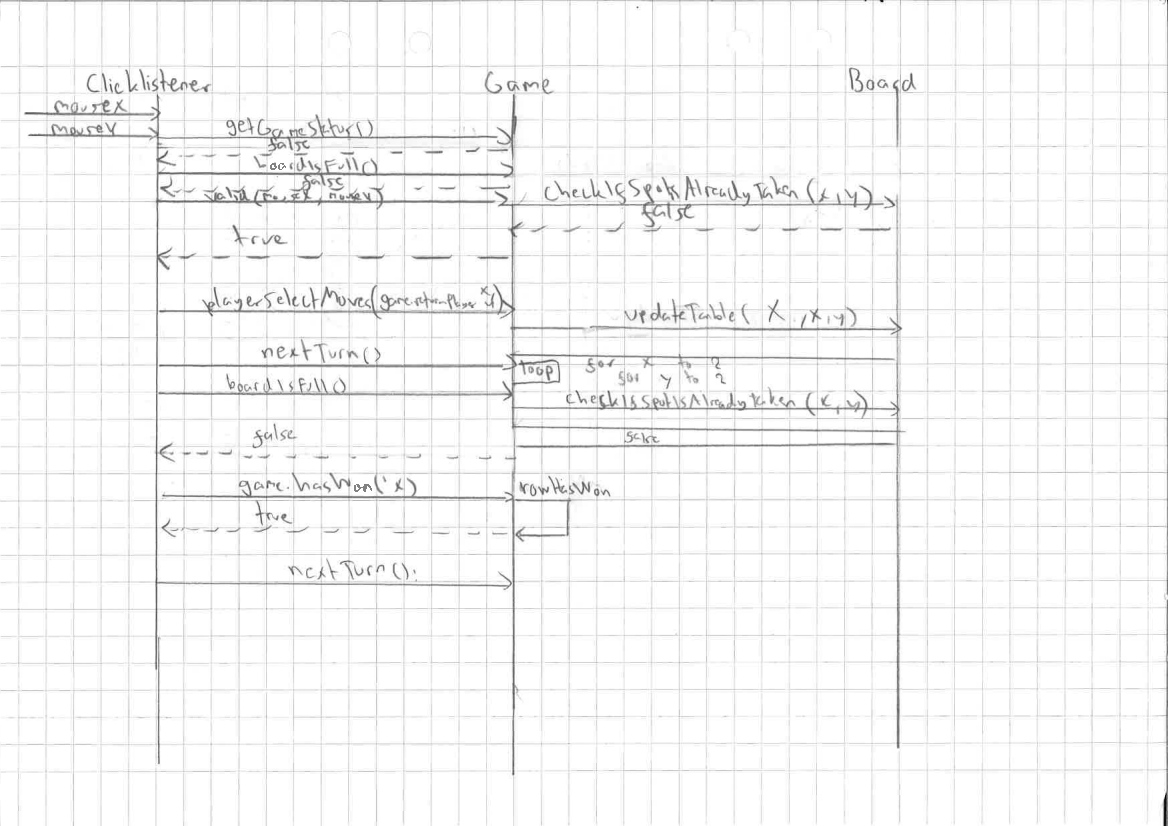 Clicklistener Game Board
mouseX
mouseY
getGameStatus()
false
boardIsFull()
false
valid(mouseX, mouseY)
checkIfSpotIsAlreadyTaken(x,y)
false
true
playerSelectMoves(game.returnPlayer x y)
updateTable( X ,x,y)
nextTurn()
loop for x to 2
for y to 2
boardIsFull()
checkIfSpotIsAlreadyTaken(x,y)
false
false
game.hasWon('x)
rowHasWon
true
nextTurn();